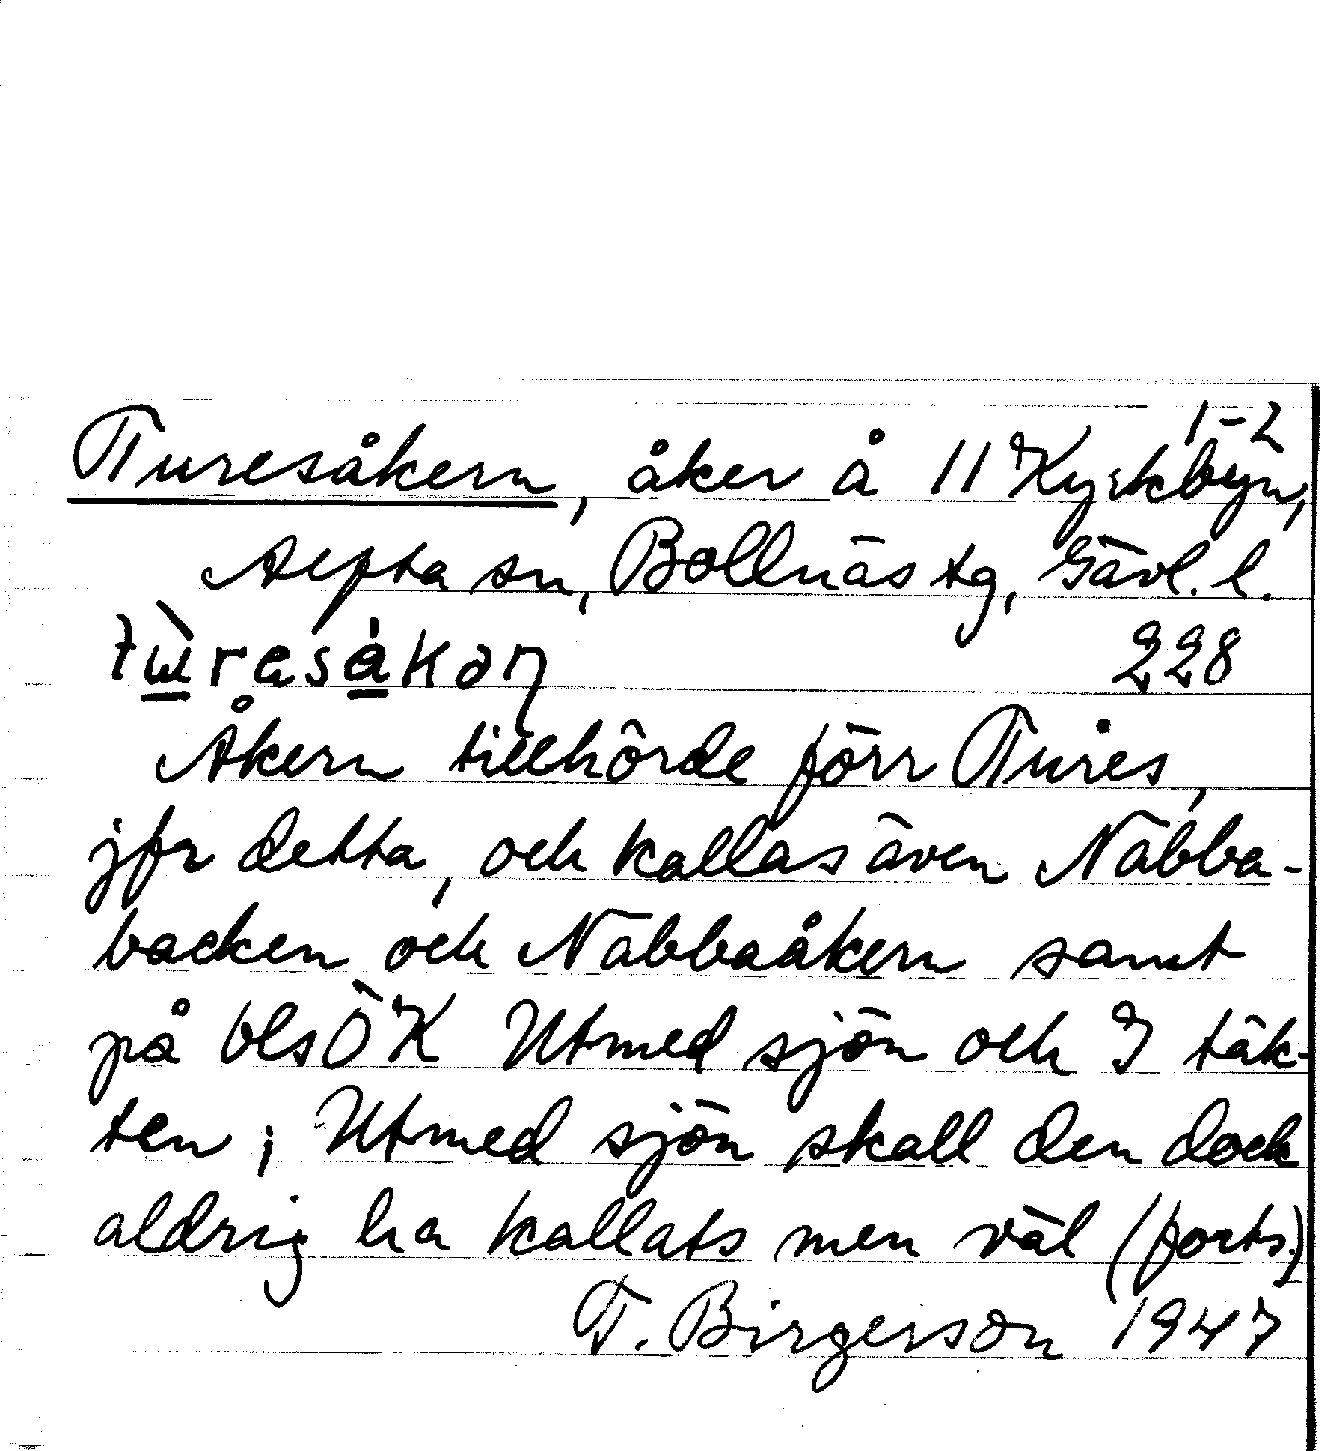 1-2
Turesåkern, åker å 11 Kyrkbyn,
Alfta sn, Bollnäs tg, Gävl. l.
228
Åkern tillhörde förr Tures,
jfr detta, och kallas även Näbba-
backen och Näbbaåkern samt
på blsÖK Utmed sjön och I täk-
ten; Utmed sjön skall den dock
aldrig ha kallats men väl (forts.)
T. Birgerson 1947